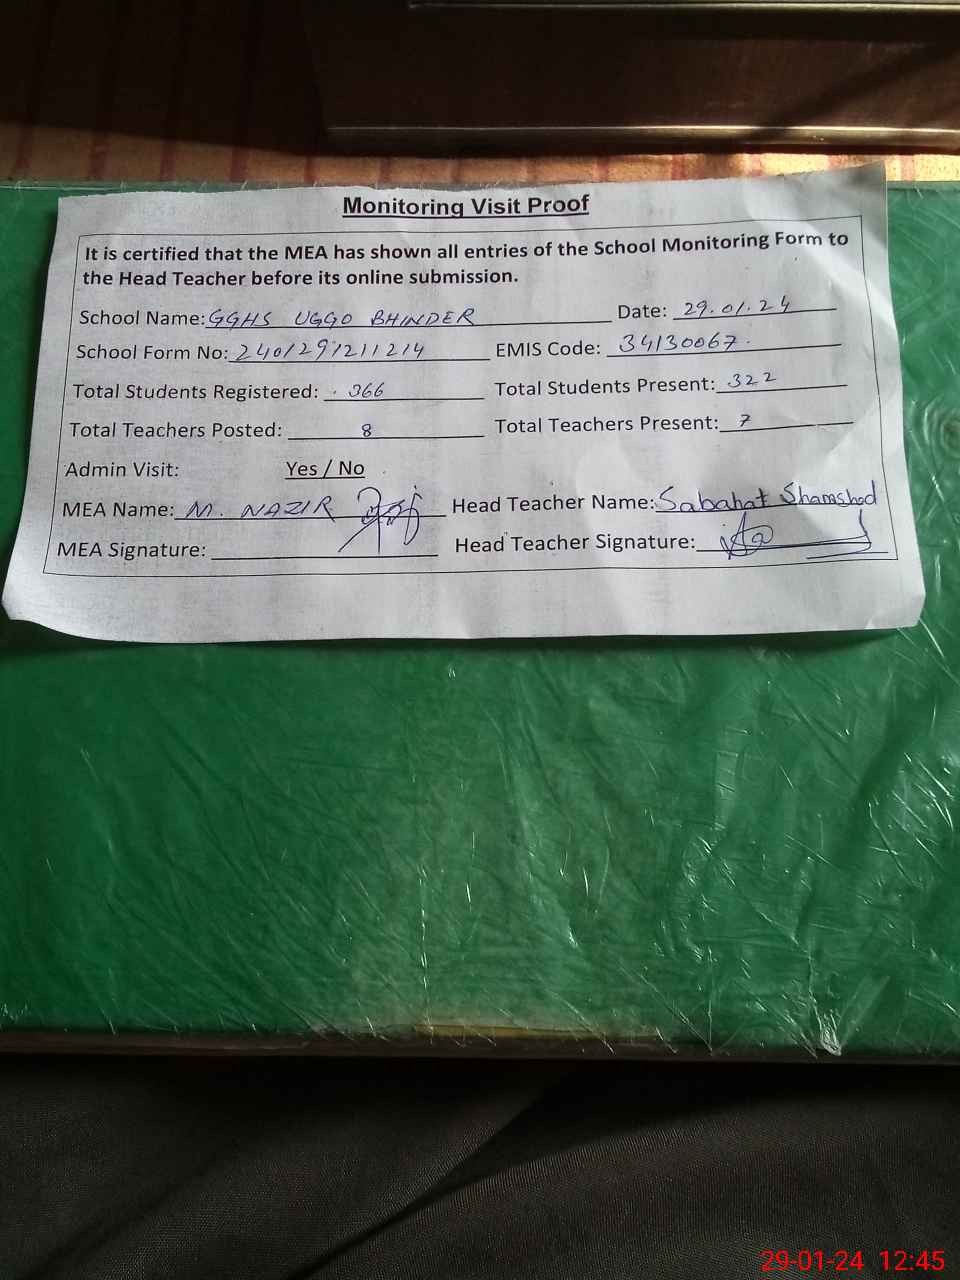 Monitoring Visit Proof
It is certified that the MEA has shown all entries of the School Monitoring Form to
the Head Teacher before its online submission.
School Name: GGHS UGGO BHINDER Date: 29.01.24
School Form No: 2401291211214 EMIS Code: 34130067.
Total Students Registered: 366 Total Students Present: 322
Total Teachers Posted: 8 Total Teachers Present: 7
Admin Visit: Yes / No
MEA Name: M. NAZIR Head Teacher Name: Sabahat Shamshad
MEA Signature: Head Teacher Signature:
29-01-24 12:45